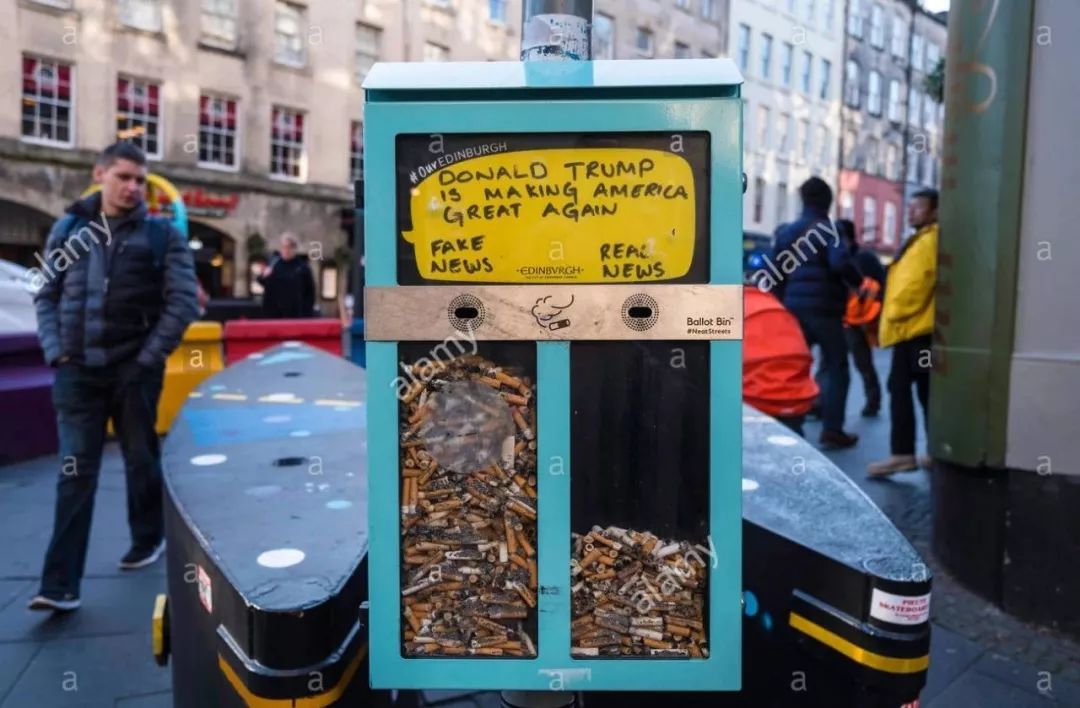 #OurEDINBURGH
DONALD TRUMP
IS MAKING AMERICA
GREAT AGAIN
FAKE
NEWS
REAL
NEWS
·EDINBVRGH·
Ballot Bin™
#NeatStreets
SKATEBOARD
alamy
alamy
alamy
alamy
a